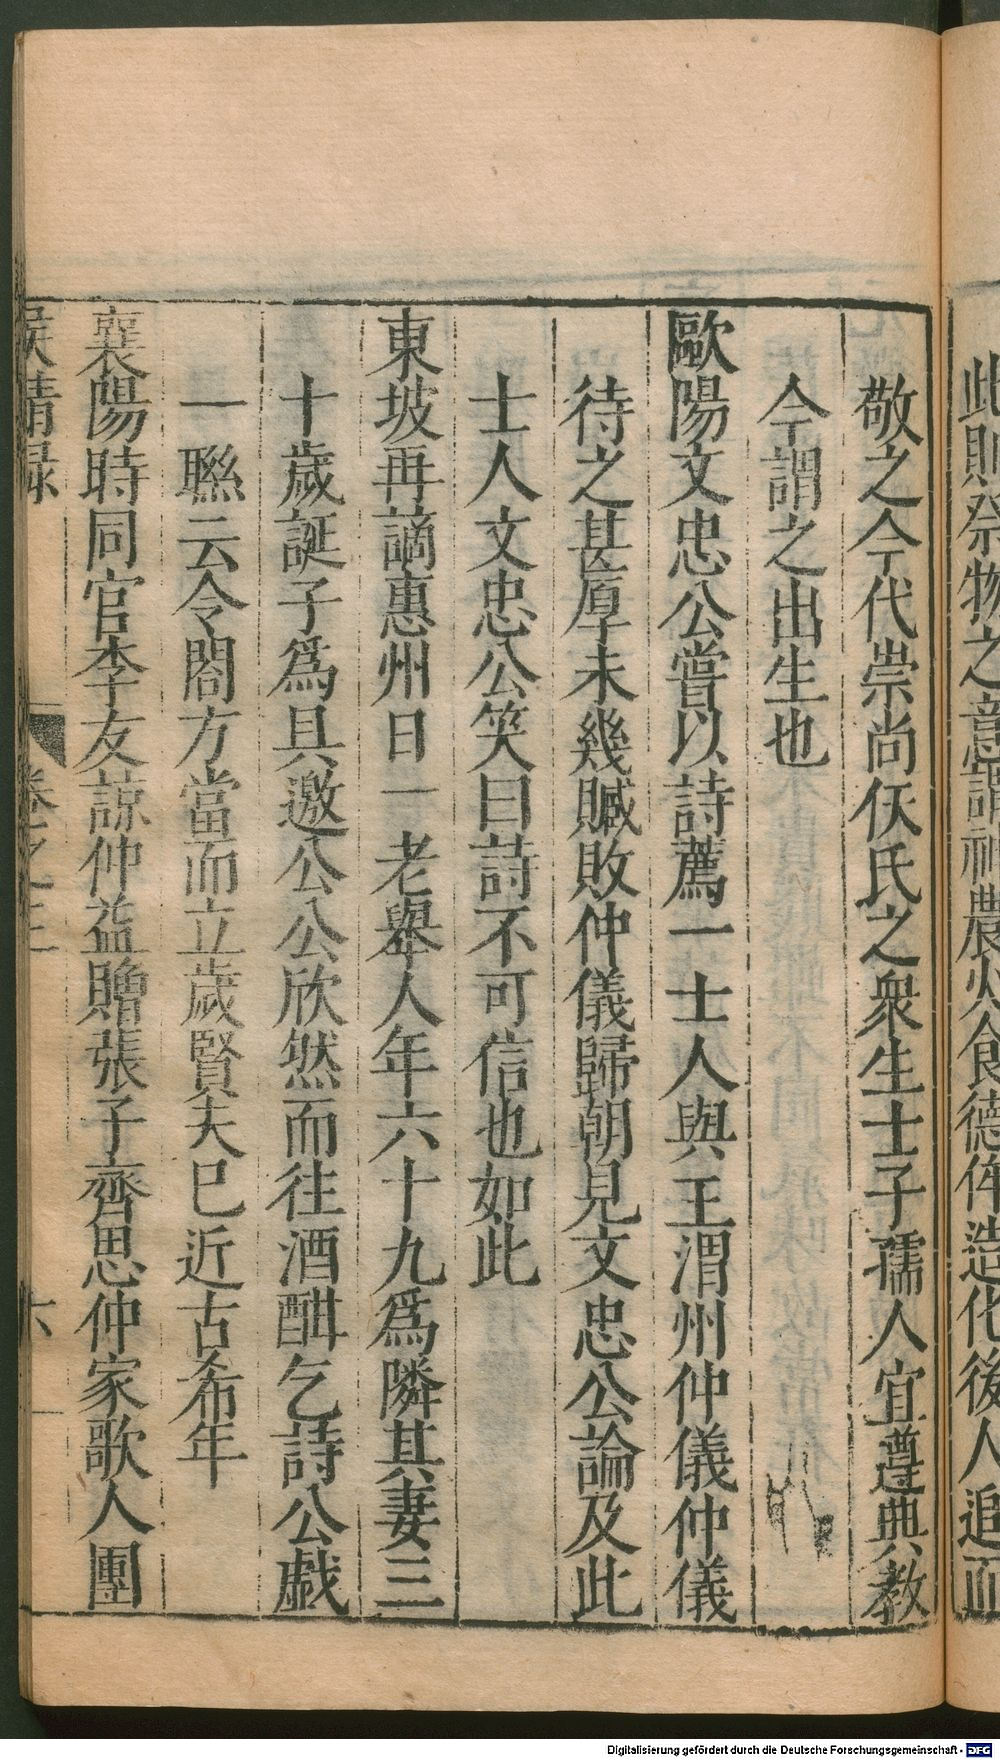 此則祭物之意謂神農火食德侔造化後人追而
敬之今代崇尚仸氏之衆生士子孺人宜遵典教
今謂之出生也
歐陽文忠公嘗以詩薦一士人與王渭州仲儀仲儀
待之甚厚未幾贓敗仲儀歸朝見文忠公論及此
士人文忠公笑曰詩不可信也如此
東坡再謫惠州日一老舉人年六十九爲隣其妻三
十歲誕子爲具邀公公欣然而往酒酣乞詩公戯
一聯云令閤方當而立歲賢夫巳近古希年
襄陽時同官李友諒仲益贈張子齊思仲家歌人團
侯鯖録 卷之三 六
Digitalisierung gefördert durch die Deutsche Forschungsgemeinschaft - DFG